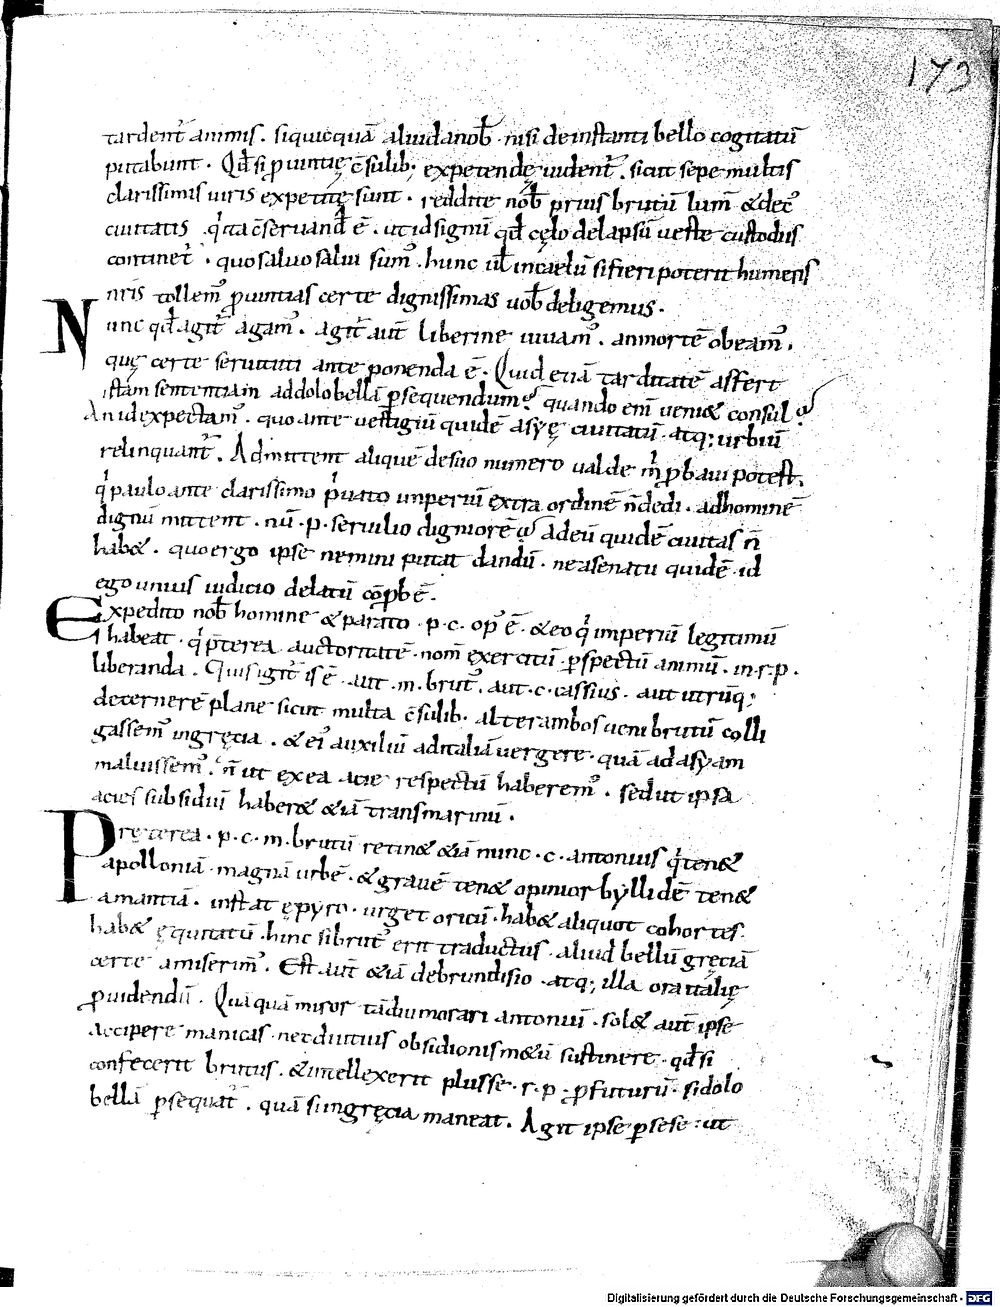 173
tardent̄ animis . siquicquā aliud anob̄ . nisi deinstanti bello cogitatū
putabunt . Qđ si ꝓuintię c̄sulib; expetendę uident̄ . sicut sepe multis
clarissimis uiris expetitę sunt . reddite nob̄ prius brutū lum̄ & dec᷒
ciuitatis . q̇ ita c̄seruand᷒ ē . ut id signū qđ cęlo delapsū ueste custodiis
continet̄ . quo saluo salui sum᷒ . hunc ul̄ in caelū si fieri poterit humeris
nr̄is tollem᷒ ꝓuintias certe dignissimas uob̄ deligemus .
Nunc qđ agit̄ agam᷒ . agit̄ aut̄ liberine uiuam᷒ . an mortē obeam᷒ .
quę certe seruituti ante ponenda ē . Quid etiā tarditatē affert
istam sententiam ad dolobellā ꝑsequendum ? quando eni᷒ ueni& consul ?
An id expectam᷒ . quo ante uestigiū quidē asyę ciuitatū . atq; urbiū
relinquant̄ . Admittent aliquē de suo numero ualde m̄ ꝓbaui potest .
q̇ paulo ante clarissimo ṗuato imperiū extra ordinē n̄ dedi . ad hominē
dignū mittent . nū . p . seruilio digniorē ? Adeū quidē ciuitas n̄
hab& . quo ergo ipse nemini putat dandū . ne a senatu quidē . id
ego unius iudicio delatū cōꝓbē .
Expedito nob̄ homine & parato . p . c . op᷒ ē . & eo q̇ imperiū legitimū
habeat . q̇ p̄terea auctoritatē . nom̄ exercitū ꝑspectū animū . in . r . p .
liberanda . Quis igit̄ is ē . aut . m . brut᷒ . aut . c . cassius . aut utrūq;
decernerē plane sicut multa c̄sulib . alter ambos ueni brutū colli
gassem᷒ in gręcia . & ei᷒ auxiliū ad italiā uergere . quā ad asyam
maluissem᷒ . n̄ ut ex ea acie respectū haberem᷒ . sed ut ipsa
acies subsidiū haber& &iā transmarinū .
Pręterea . p . c . m . brutū retin& &iā nunc . c . antonius q̇ ten&
apolloniā . magnā urbē . & grauē ten& opinior byllidē ten&
amantiā . instat ępyro . urget oricū . hab& aliquot cohortes .
hab& ęquitatū . hinc si brut᷒ erit traductus . aliud bellū gręciā
certe amiserim᷒ . Est aut̄ &iā de brundisio . atq; illa ora italię
ꝓuidendū . Quāquā miror tādiu morari antoniū . sol& aut̄ ipse
accipere manicas . nec diutius obsidionis m&ū sustinere . qđ si
confecerit brutus . & intellexerit plusse . r . p . ꝓfuturū . si dolo
bellā ꝑsequat᷒ . quā si in gręcia maneat . Agit ipse ꝑ sese : ut
Digitalisierung gefördert durch die Deutsche Forschungsgemeinschaft - DFG